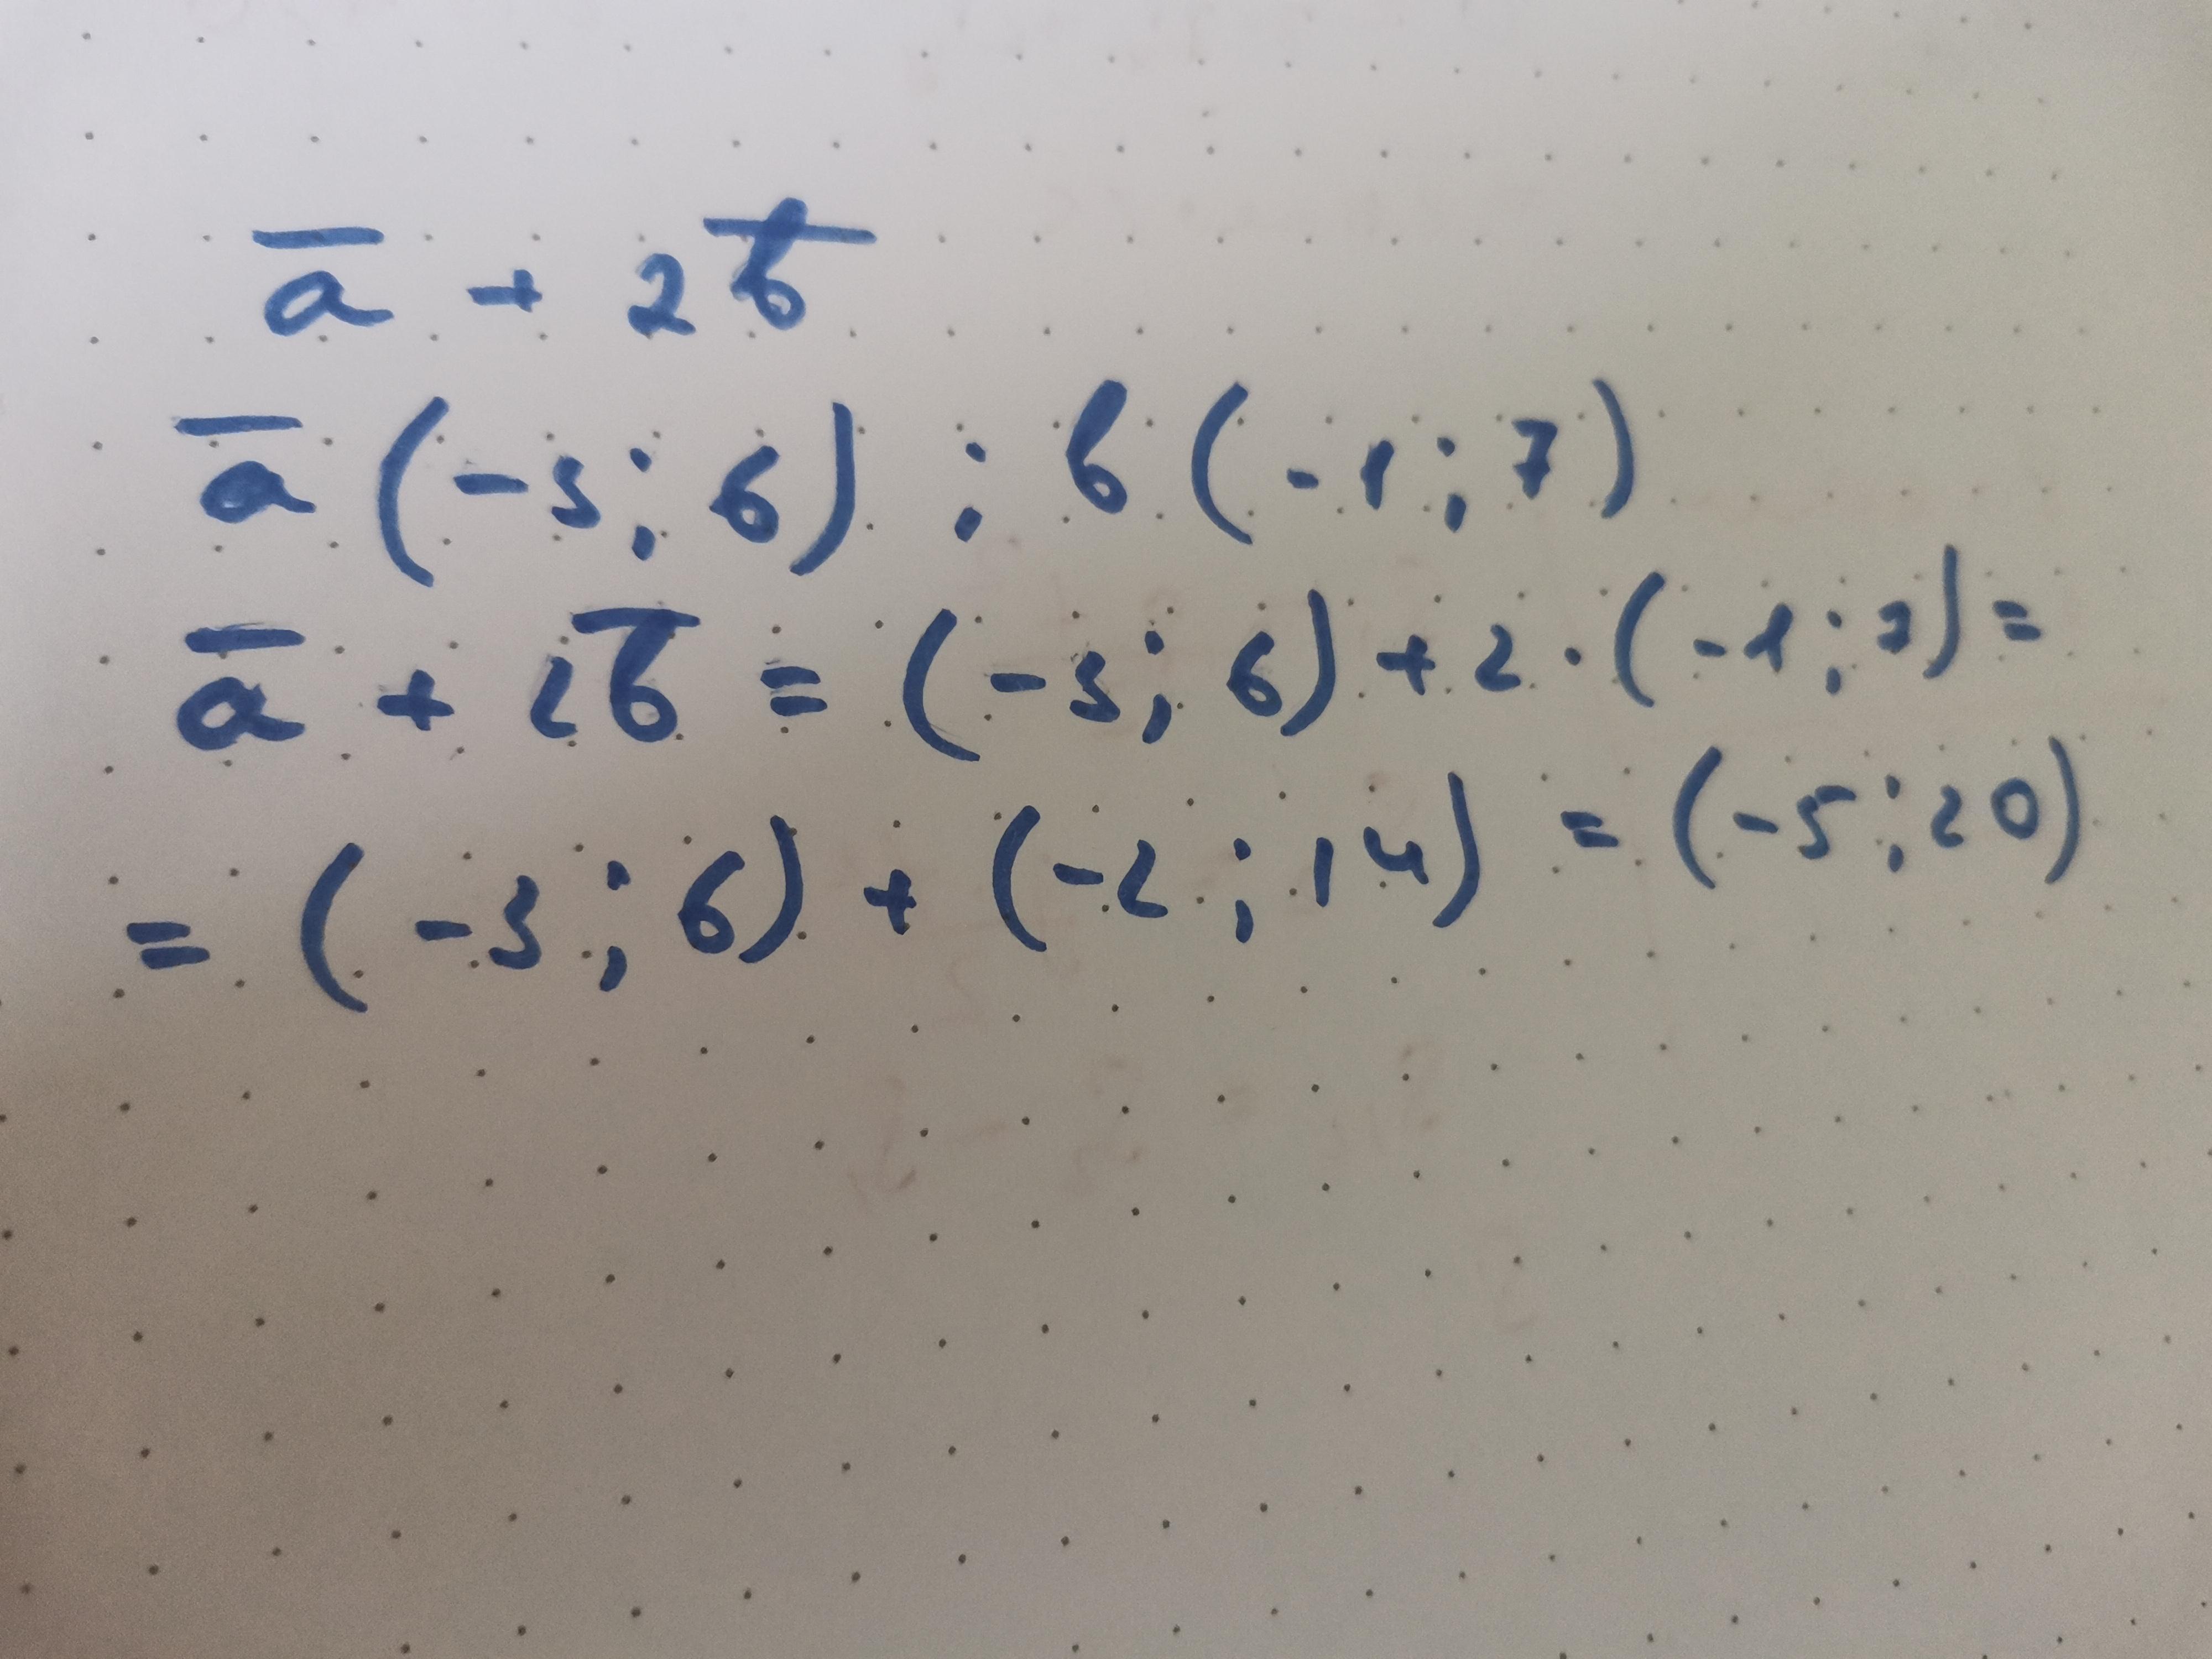 a̅ + 2b̅
a̅ (-3; 6) ; b (-1; 7)
a̅ + 2b̅ = (-3; 6) + 2 · (-1; 7) =
= (-3; 6) + (-2; 14) = (-5; 20)